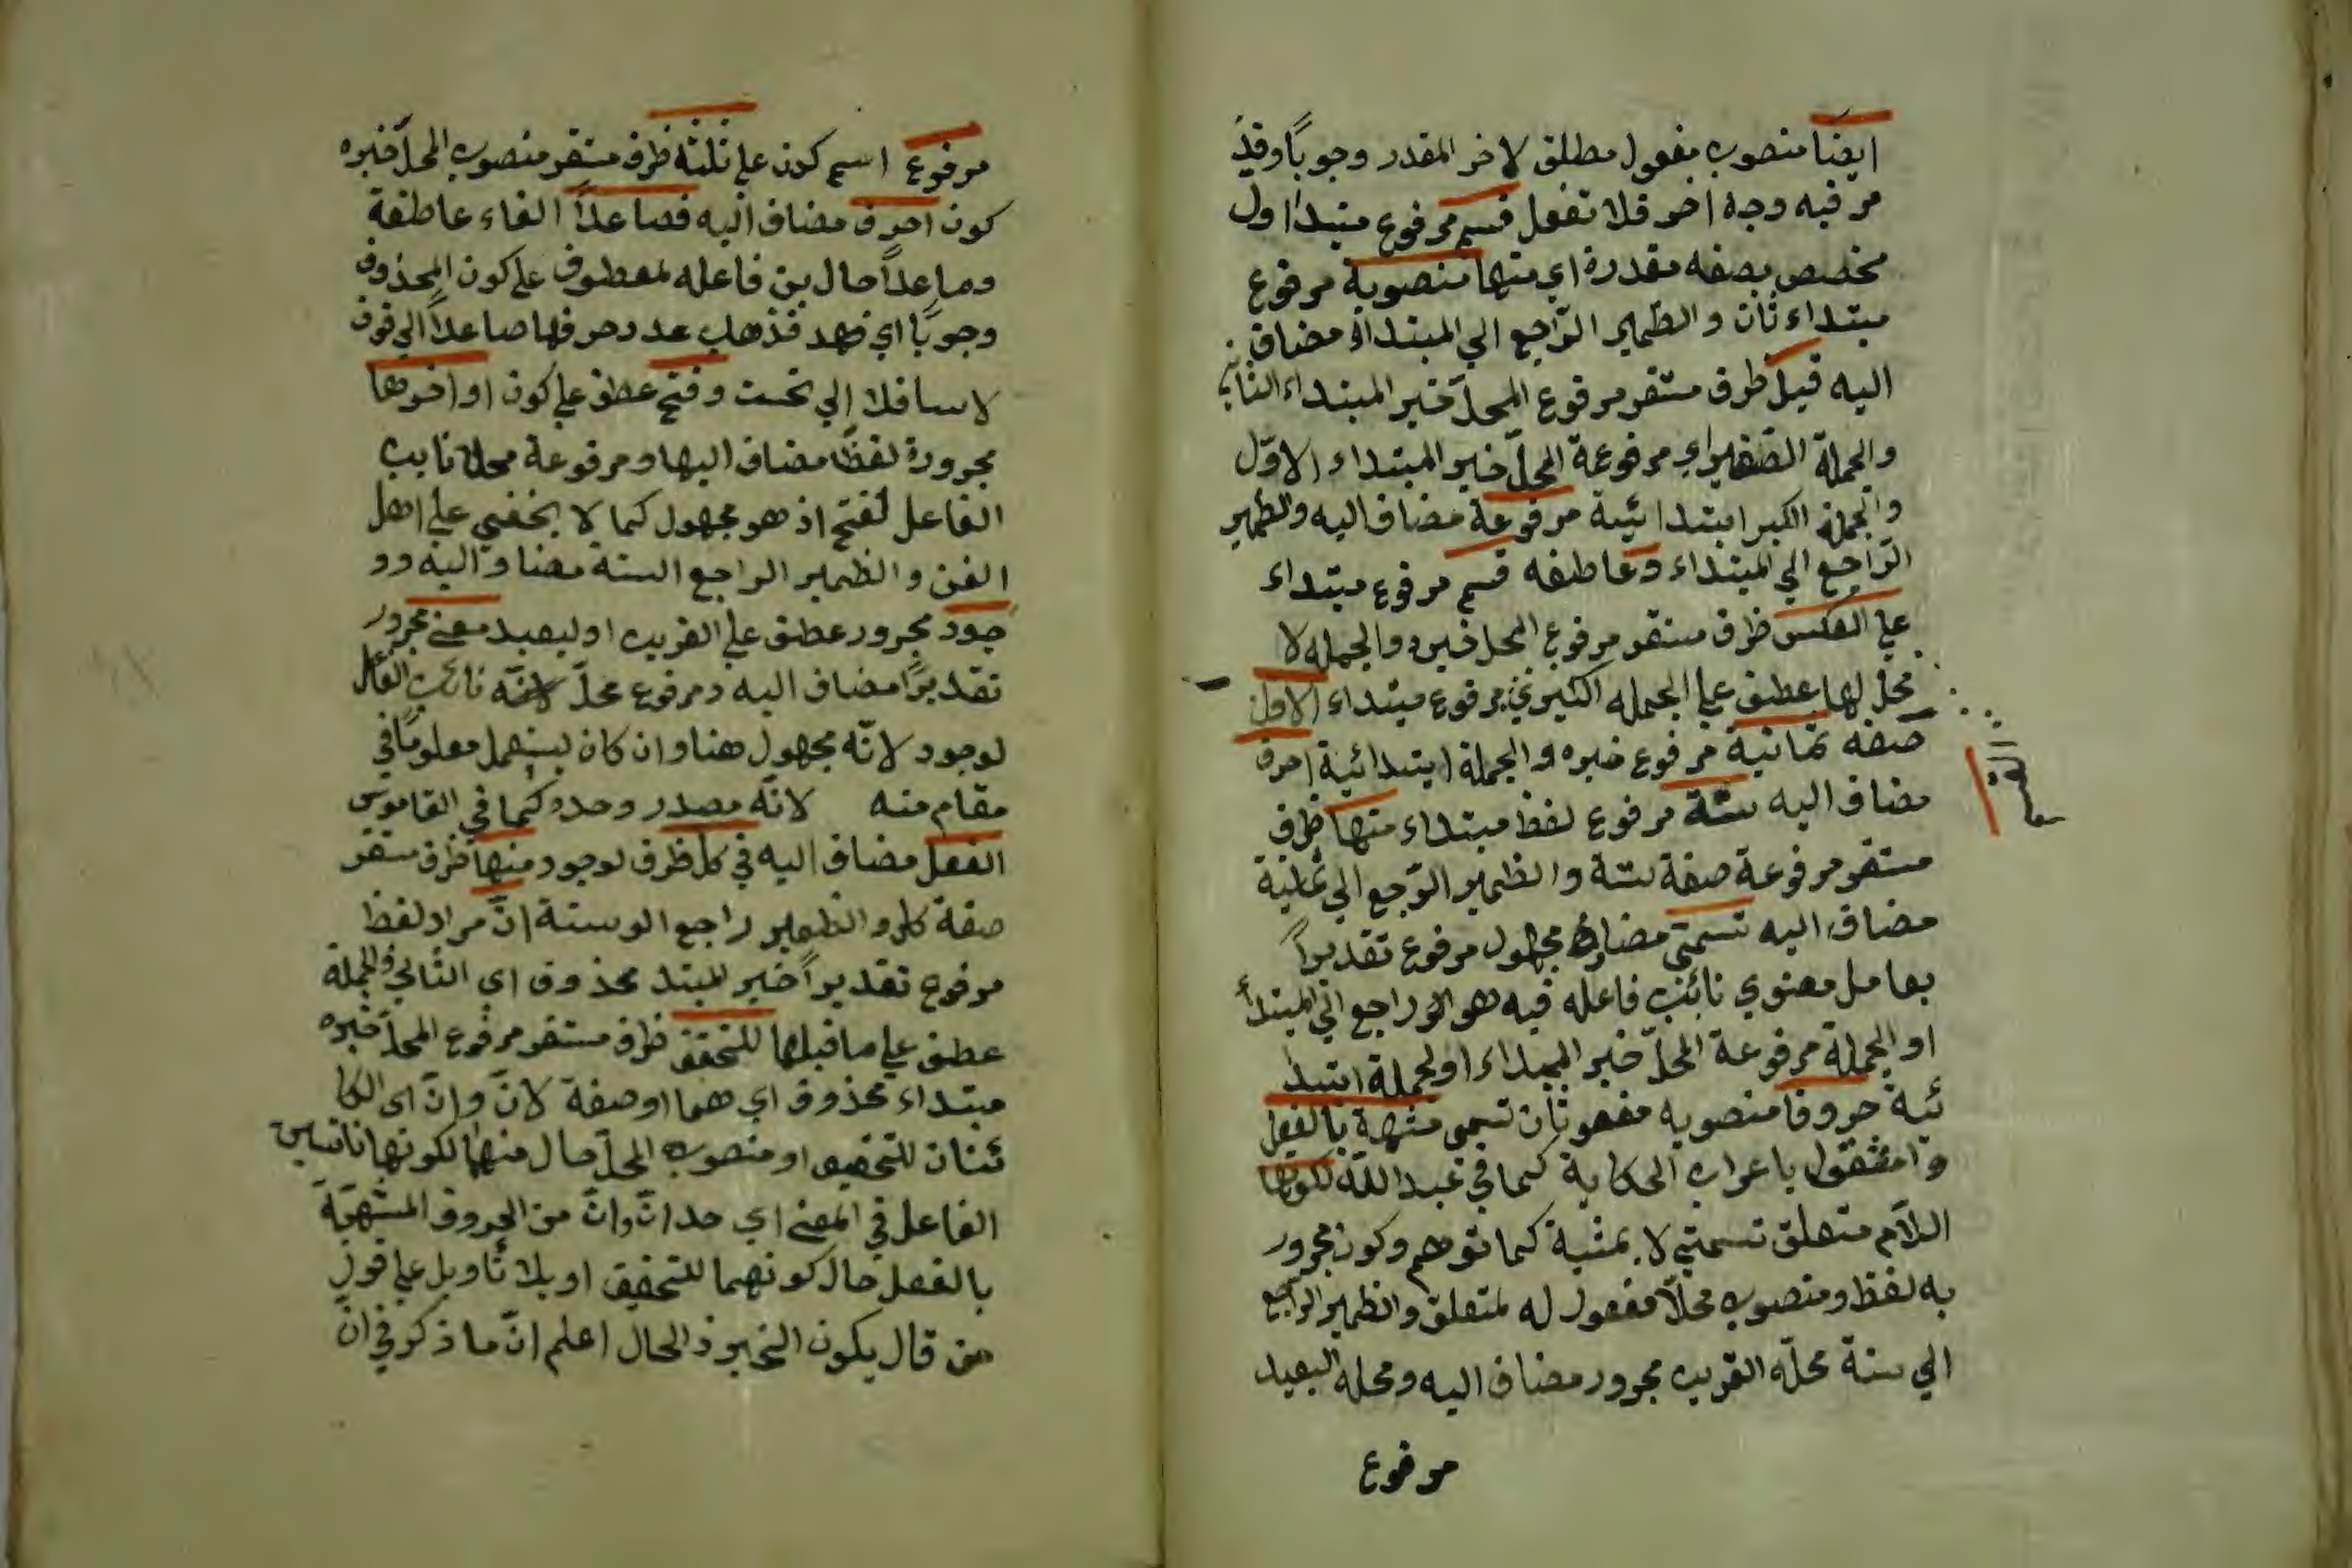 ايضًا منصوب مفعول مطلق لاخر المقدر وجوبًا وقد
مر فيه وجه اخر فلا تغفل قسم مرفوع مبتدا اول
مخصص بصفه مقدرة اي منها منصوبة مرفوع
مبتداء ثان و الظمير الرّاجع الي المبتداء مضاف
اليه قبل ظرف مستقر مرفوع المحلّ خبر المبتداء الثاني
والجملة الصّغيراي مرفوعة المحلّ خبر المبتداء الاوّل
والجملة الكبرا ابتدائية مرفوعة مضاف اليه والظمير
الرّاجع الي المبتداء وعاطفه قسم مرفوع مبتداء
علي العكس ظرف مستقر مرفوع المحل خبره والجمله لا
محلّ لها عطف علي الجمله الكبري مرفوع مبتداء الاول
صفه ثمانية مرفوع خبره والجملة ابتدائية احرف
القسم
مضاف اليه ستّة مرفوع لفظ مبتداء منها ظرف
مستقر مرفوعة صفة ستة والظمير الرّجع الي ثمانية
مضاف اليه تسمّي مضارع مجهول مرفوع تقديرًا
بعامل معنوي نائب فاعله فيه هو الراجع الي المبتدأ
او الجملة مرفوعة المحلّ خبر المبتداء اولجملة ابتدا
ئية حروفا منصوبه مفعو ثان تسمي مشبهة بالفعل
و امشغول باعراب الحكاية كما في عبد اللّه لكونها
اللّام متعلق تسمّي لا بمشبة كما توهم وكون مجرور
به لفظ ومنصوب محلّا مفعول له لمتعلق والظمير الراجع
الي ستة محلّه القريب مجرور مضاف اليه ومحله البعيد
مرفوع
مرفوع اسم كون علي ثلثة ظرف مستقر منصوب المحلّ خبره
كون احرف مضاف اليه فصاعدًا الفاء عاطفة
وصاعدًا حال بين فاعله لمعطوف علي كون المحذوف
وجوبًا اي فهد فذهاب عدد حرفها صاعدًا الي فوق
لاسافلا الي تحت وفتح عطف علي كون اواخرها
مجرورة لفظًا مضاف اليها ومرفوعة محلا نايب
الفاعل لفتح اذ هو مجهول كما لا يخفي علي اهل
الفن و الظمير الراجع الستة مضاو اليه وو
جود مجرور عطف علي القريب او لبعيد معني مجرور
تقديرًا مضاف اليه ومرفوع محلّ لانّه نائب الفاعل
لوجود لانّه مجهول هنا وان كان ليستعمل معلومًا في
مقام منه لانّه مصدر وحده كما في القاموس
الفعل مضاف اليه في كل ظرف لوجود منها ظرف مستقر
صفة كل و الظمير راجع الو ستة انّ مراد لفظ
مرفوع تقديرًا خبر للمبتد محذوف اي الثاني والجملة
عطف علي ما قبلها للتحقق ظرف مستقر مرفوع المحلّ خبره
مبتداء محذوف اي هما او صفة لانّ وانّ اي الكا
ئنان للتحقيق او منصوب المحلّ حال منهما لكونها نائبين
الفاعل في المعني اي حد انّ وانّ من الحروف المشبّهة
بالفعل حال كونهما للتحقيق او بلا تأويل علي قول
من قال يكون الخبر ذ الحال اعلم انّ ما ذكر في انّ